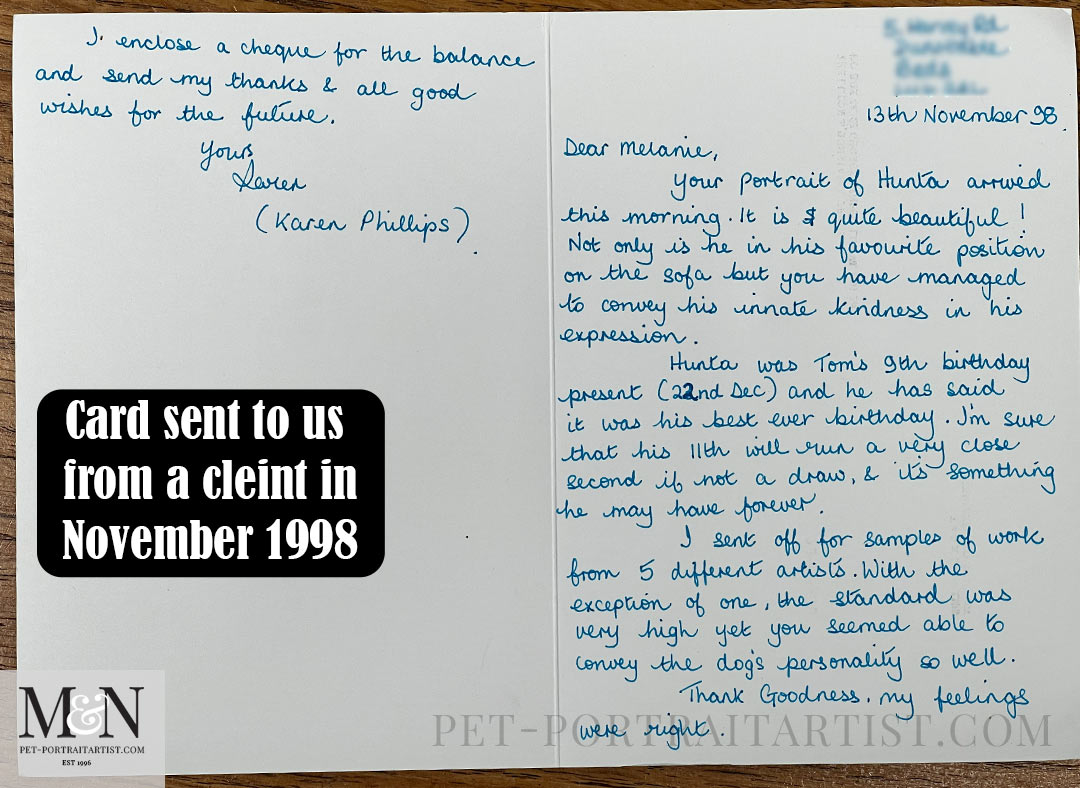 13th November 98.
Dear Melanie,
Your portrait of Hunta arrived
this morning. It is quite beautiful!
Not only is he in his favourite position
on the sofa but you have managed
to convey his innate kindness in his
expression.
Hunta was Tom's 9th birthday
present (22nd Dec) and he has said
it was his best ever birthday. I'm sure
that his 11th will run a very close
second if not a draw, & it's something
he may have forever.
I sent off for samples of work
from 5 different artists. With the
exception of one, the standard was
very high yet you seemed able to
convey the dog's personality so well.
Thank Goodness, my feelings
were right.
I enclose a cheque for the balance
and send my thanks & all good
wishes for the future.
Yours
Karen
(Karen Phillips).
Card sent to us
from a cleint in
November 1998
M&N
PET-PORTRAITARTIST.COM
EST 1996
PET-PORTRAITARTIST.COM